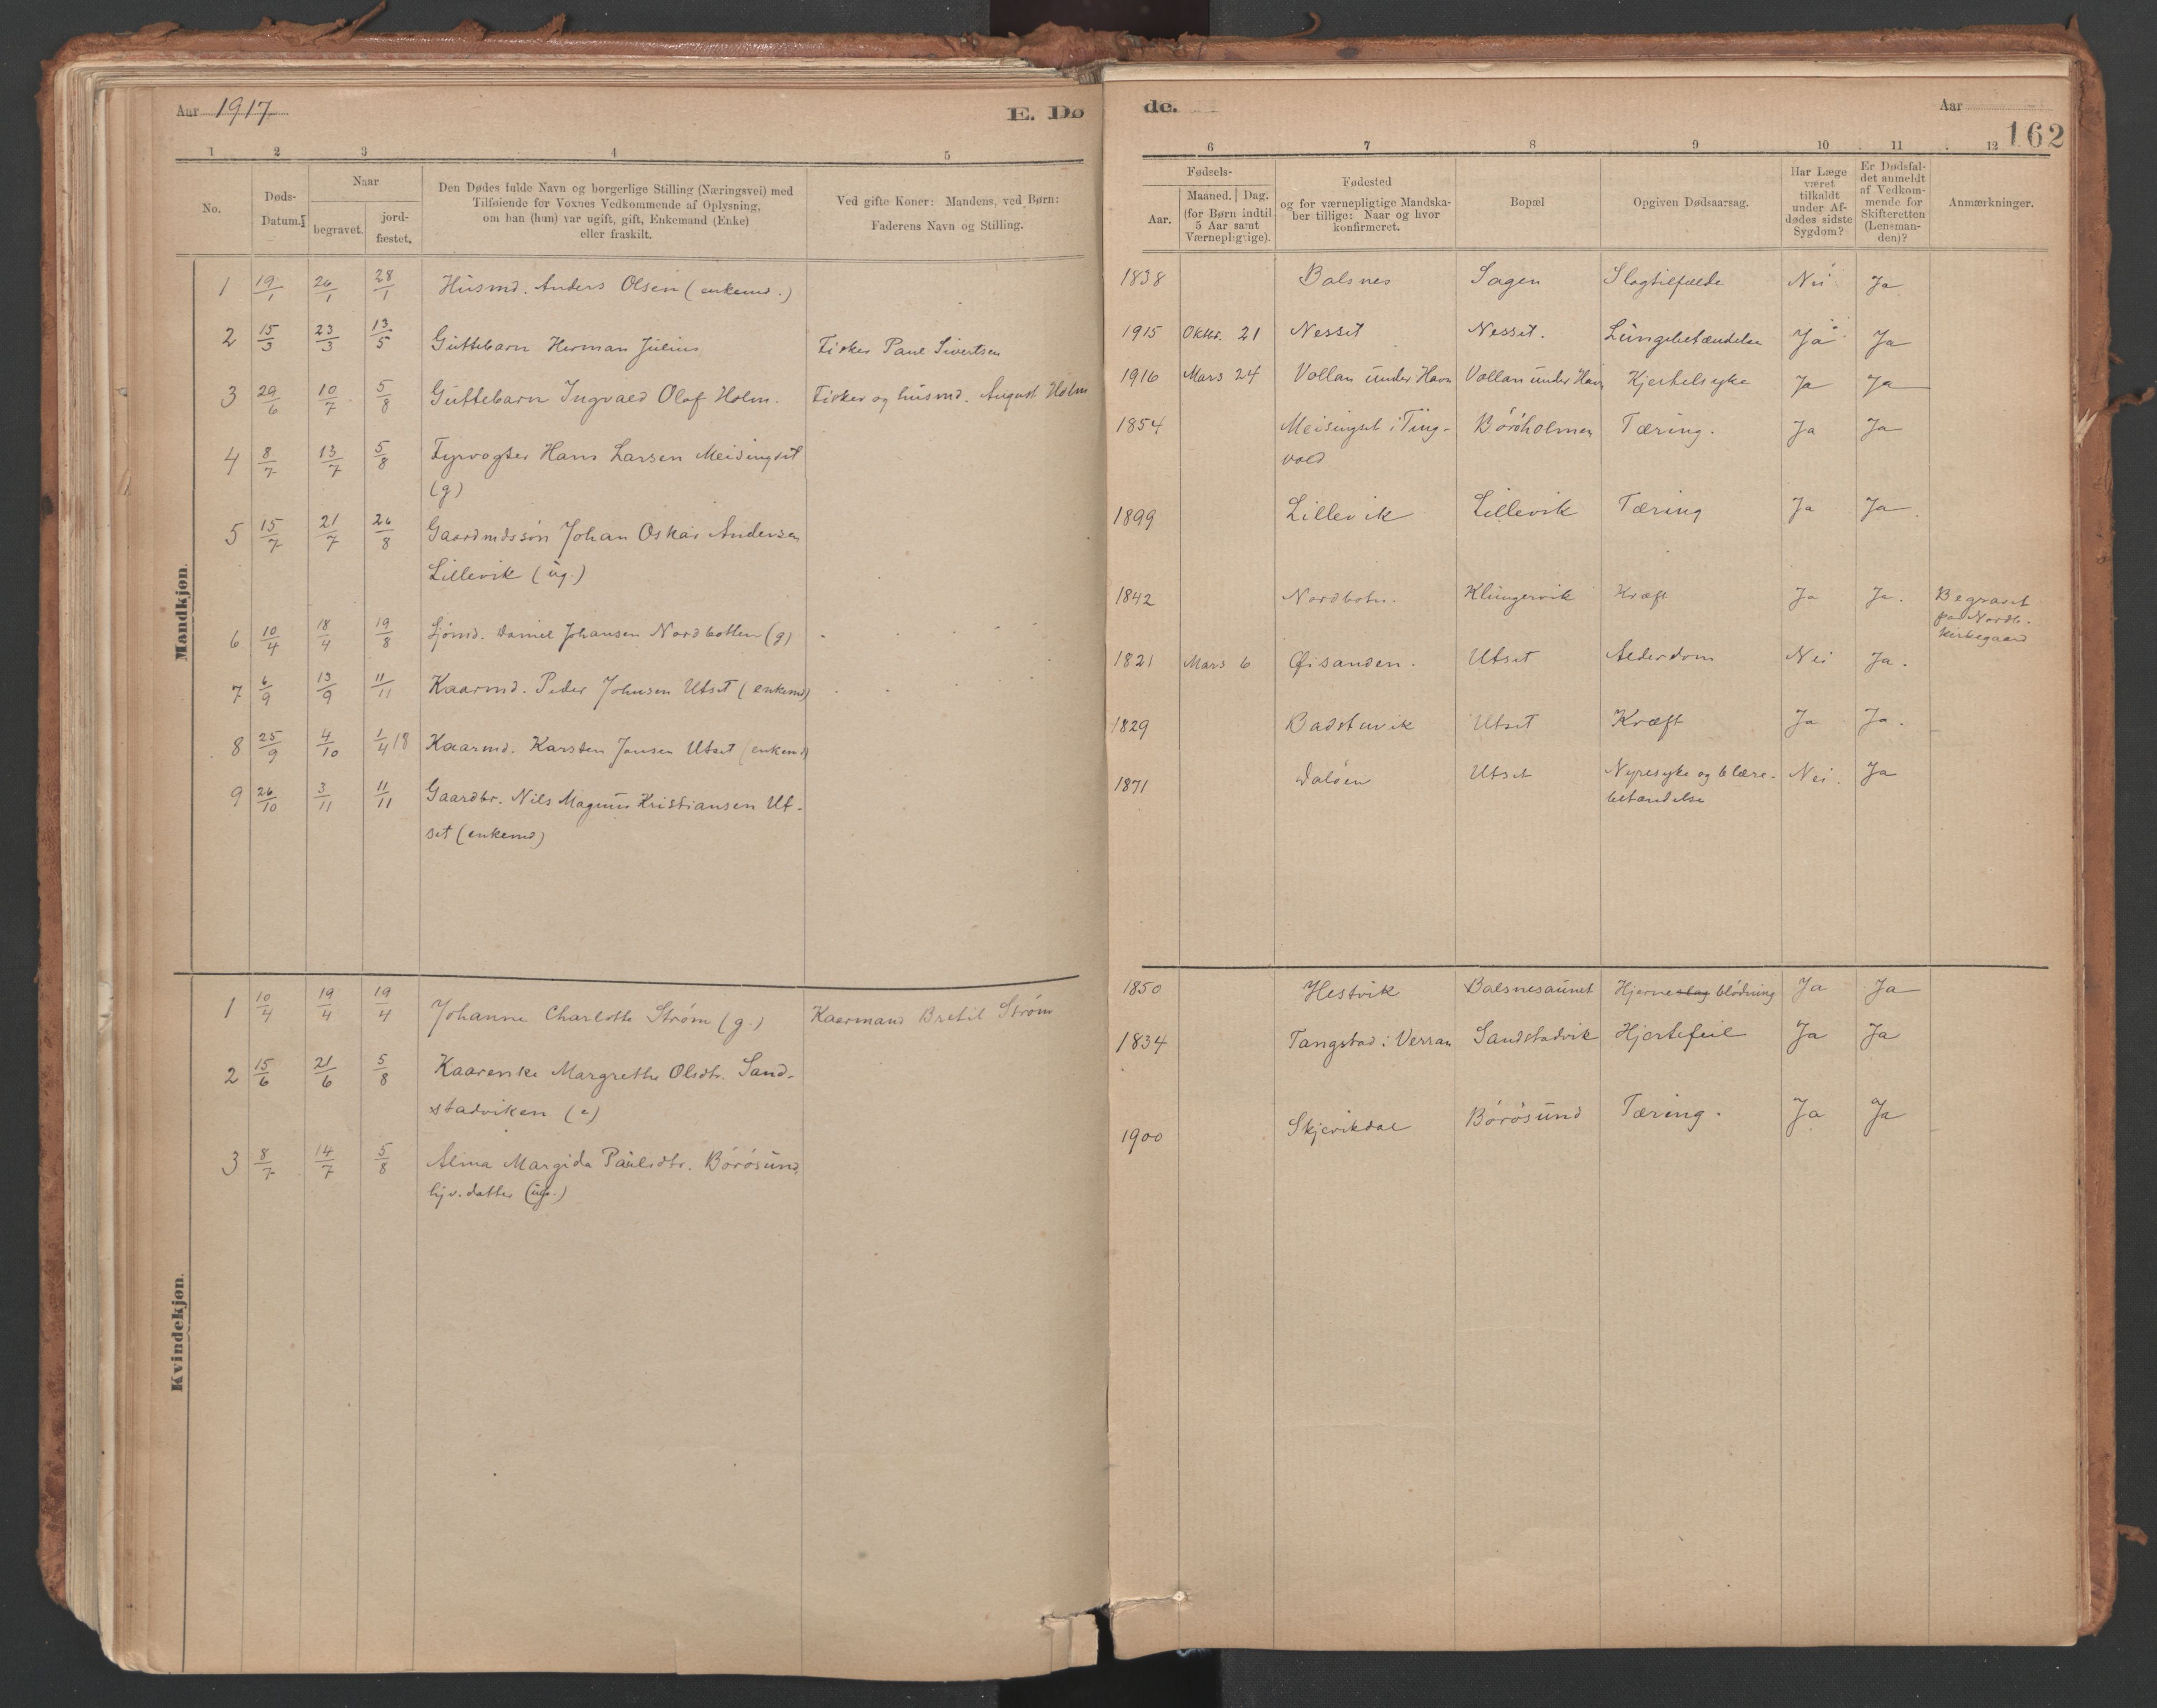 Aar 1917
E. Dø
de.
Aar
162
1 2 3 4 5
6 7 8 9 10 11 12
No.
Døds-
Datum.
Naar
begravet.
jord-
fæstet.
Den Dødes fulde Navn og borgerlige Stilling (Næringsvei) med
Tilføiende for Voxnes Vedkommende af Oplysning,
om han (hun) var ugift, gift, Enkemand (Enke)
eller fraskilt.
Ved gifte Koner: Mandens, ved Børn:
Faderens Navn og Stilling.
Fødsels-
Aar.
Maaned. Dag.
(for Børn indtil
5 Aar samt
Værnepligtige).
Fødested
og for værnepligtige Mandska-
ber tillige: Naar og hvor
konfirmeret.
Bopæl
Opgiven Dødsaarsag.
Har Læge
været
tilkaldt
under Af-
dødes sidste
Sygdom?
Er Dødsfal-
det anmeldt
af Vedkom-
mende for
Skifteretten
(Lensman-
den)?
Anmærkninger.
Mandkjøn.
1 19/1 26/1 28/1 Husmd. Anders Olsen (enkemd.) 1838 Balsnes Sagen Slagtilfælde Nei Ja
2 15/3 23/3 13/5 Guttebarn Herman Julius Fisker Paul Sivertsen 1915 Oktbr. 21 Nesset Nesset. Lungebetændelse Ja Ja
3 29/6 10/7 5/8 Guttebarn Ingvald Olaf Holm. Fisker og husmd. August Holm 1916 Mars 24 Vollan under Havn Vollan under Havn Kjertelsyke Ja Ja
4 8/7 13/7 5/8 Fyrvogter Hans Larsen Meisingset 1854 Meisingset i Ting- Böröholmen Tæring. Ja Ja
(g) vold
5 15/7 21/7 26/8 Gaardmdssön Johan Oskar Andersen 1899 Lillevik Lillevik Tæring Ja Ja
Lillevik (ug.)
6 10/4 18/4 19/8 Sjömd. Daniel Johansen Nordbotten (g) 1842 Nordbotn. Klungervik Kræft Ja Ja. Begravet
paa Nordb.
kirkegaard
7 6/9 13/9 11/11 Kaarmd. Peder Johnsen Utset (enkemd) 1821 Mars 6 Øisanden. Utset Alderdom Nei Ja.
8 25/9 4/10 1/4 18 Kaarmd. Karsten Jonsen Utset (enkemd) 1829 Badstuvik Utset Kræft Ja Ja.
9 26/10 3/11 11/11 Gaardbr. Nils Magnus Kristiansen Ut- 1871 Dalöen Utset Nyresyke og blære- Nei. Ja
set (enkemd) betændelse
Kvindekjøn.
1 10/4 19/4 19/4 Johanne Charlotte Strøm (g.) Kaarmand Bretil Strøm 1850 Hestvik Balsnesaunet Hjerneslag blödning Ja Ja
2 15/6 21/6 5/8 Kaarenke Margrethe Olsdtr. Sand- 1834 Tangstad i Verran Sandstadvik Hjertefeil Ja Ja
stadviken (e)
3 8/7 14/7 5/8 Alma Margida Paulsdtr. Börösund 1900 Skjevikdal Börösund Tæring. Ja Ja
datter (ug.)